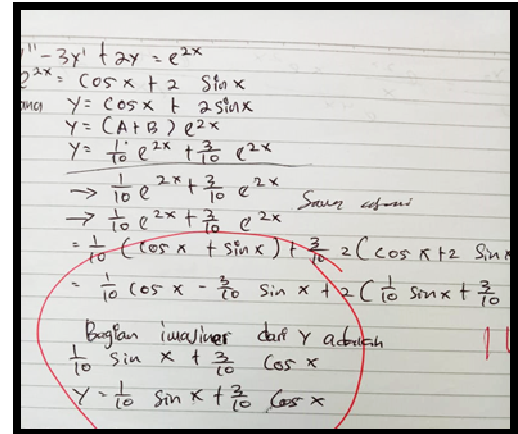 '' - 3y' + 2y = e^2x
e^2x = Cos x + 2 Sin x
Y = Cos x + 2 sin x
Y = (A + B) e^2x
Y = 1/10 e^2x + 3/10 e^2x
→ 1/10 e^2x + 3/10 e^2x
→ 1/10 e^2x + 3/10 e^2x
= 1/10 (Cos x + sin x) + 3/10 2 (Cos x + 2 Sin x
= 1/10 Cos x - 3/10 Sin x + 2 ( 1/10 Sin x + 3/10
Bagian imajiner dari Y adalah
1/10 Sin x + 3/10 Cos x
Y = 1/10 Sin x + 3/10 Cos x